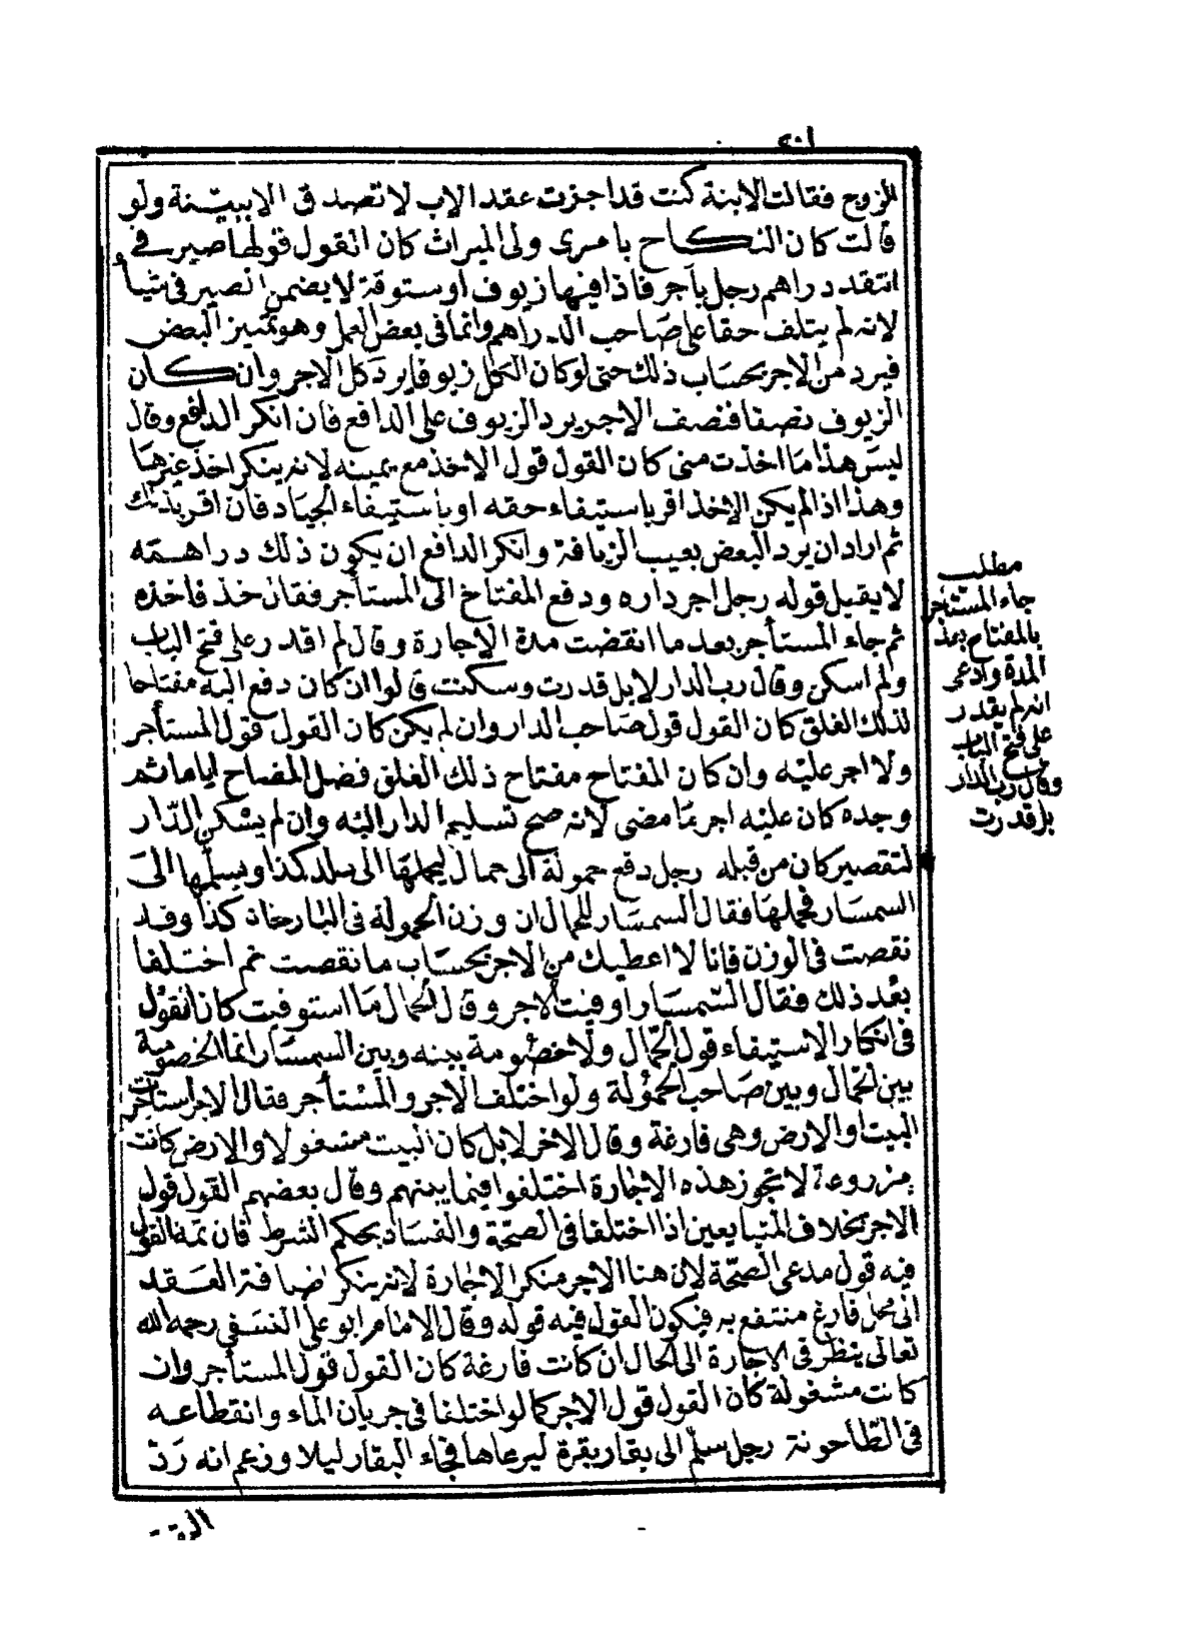 الزوج فقالت الابنة كنت قد اجزت عقد الاب لا تصدق الا ببينة ولو
قالت كان النكاح بامرى ولى الميراث كان القول قولها صيرفى
انتقد دراهم رجل باجر فاذا فيها زيوف او ستوقة لا يضمن الصيرفى شيأ
لانه لم يتلف حقا على صاحب الدراهم وانما فى بعض العمل وهو تمييز البعض
فيرد من الاجر بحساب ذلك حتى لو كان الكل زيوفا يرد كل الاجر وان كان
الزيوف نصفا فنصف الاجر يرد الزيوف على الدافع فان انكر الدافع وقال
ليس هذا ما اخذت منى كان القول قول الاخذ مع يمينه لانه ينكر اخذ غيرها
وهذا اذا لم يكن الاخذ اقر باستيفاء حقه او باستيفاء الجياد فان اقر بذلك
ثم اراد ان يرد البعض بعيب الزيافة وانكر الدافع ان يكون ذلك دراهمه
لا يقبل قوله رجل اجر داره ودفع المفتاح الى المستأجر فقال خذ فاخذه
ثم جاء المستأجر بعد ما انقضت مدة الاجارة وقال لم اقدر على فتح الباب
ولم اسكن وقال رب الدار لا بل قدرت وسكنت قالوا ان كان دفع اليه مفتاحا
لذلك الغلق كان القول قول صاحب الدار وان لم يكن كان القول قول المستأجر
ولا اجر عليه وان كان المفتاح مفتاح ذلك الغلق فضل المفتاح اياما ثم
وجده كان عليه اجر ما مضى لانه صح تسليم الدار اليه وان لم يسكن الدار
لتقصير كان من قبله رجل دفع حمولة الى حمال ليحملها الى بلد كذا ويسلمها الى
السمسار فحملها فقال السمسار للحمال ان وزن الحمولة فى البارخاذ كذا وقد
نقصت فى الوزن فانا لا اعطيك من الاجر بحساب ما نقصت ثم اختلفا
بعد ذلك فقال السمسار اوفيت الاجر وقال الحمال ما استوفيت كان القول
فى انكار الاستيفاء قول الحمال ولا خصومة بينه وبين السمسار انما الخصومة
بين الحمال وبين صاحب الحمولة ولو اختلف الاجر والمستأجر فقال الاجر استأجرت
البيت او الارض وهى فارغة وقال الاخر لا بل كان البيت مشغولا والارض كانت
مزروعة لا تجوز هذه الاجارة اختلفوا فيما بينهم وقال بعضهم القول قول
الاجر بخلاف المتبايعين اذا اختلفا فى الصحة والفساد بحكم الشرط فان ثمة القول
فيه قول مدعى الصحة لان هنا الاجر منكر الاجارة لانه ينكر اضافة العقد
الى محل فارغ منتفع به فيكون القول فيه قوله وقال الامام ابو على النسفى رحمه الله
تعالى ينظر فى الاجارة الى الحال ان كانت فارغة كان القول قول المستأجر وان
كانت مشغولة كان القول قول الاجر كما لو اختلفا فى جريان الماء وانقطاعه
فى الطاحونة رجل سلم الى بقار بقرة ليرعاها فجاء البقار ليلا وزعم انه رد
مطلب
جاء المستأجر
بالمفتاح بعد
المدة وادعى
انه لم يقدر
على فتح الباب
وقال رب الدار
بل قدرت